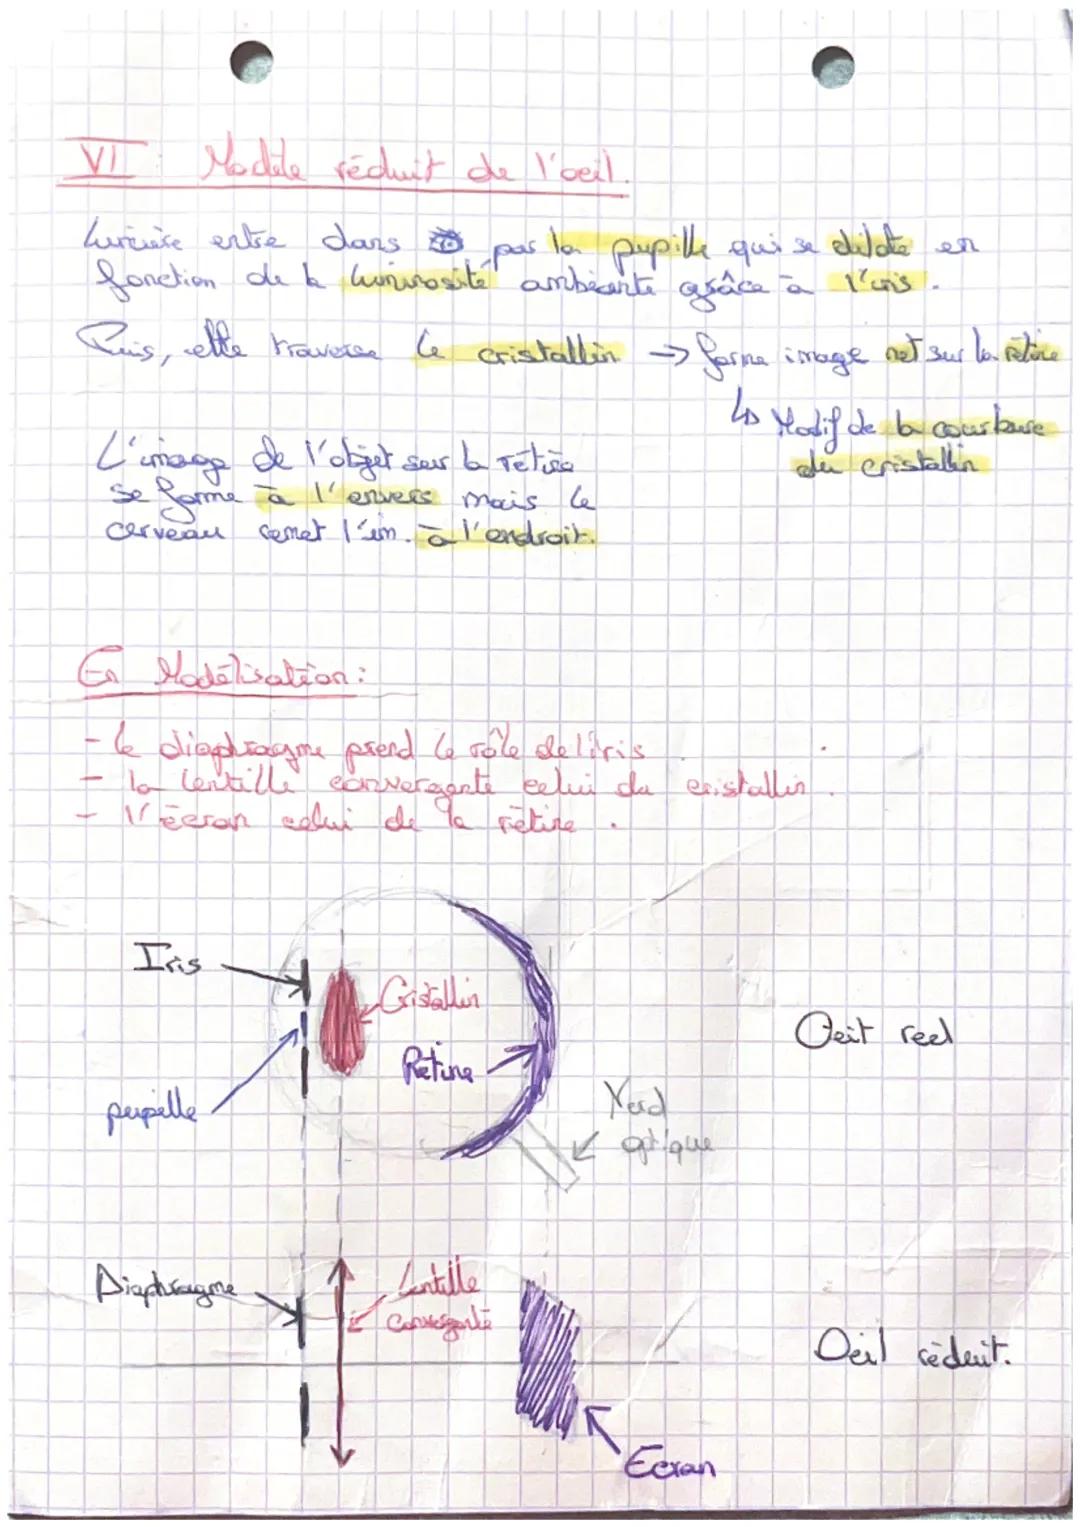 VI : Modèle réduit de l'oeil.
Lumière entre dans par la pupille qui se dilate en
fonction de la luminosité ambiante grâce à l'iris.
Puis, elle traverse le cristallin → forme image net sur la rétine
↳ Modif de la courbure
du cristallin
L'image de l'objet sur la rétine
se forme à l'envers mais le
cerveau remet l'im. à l'endroit.
En Modélisation :
- le diaphragme prend le rôle de l'iris
- la lentille convergente celui du cristallin.
- l'écran celui de la rétine.
Iris
Cristallin
Rétine
pupille
Nerd
optique
Oeit reel
Diaphragme
Lentille
convergente
Oeil réduit.
Ecran